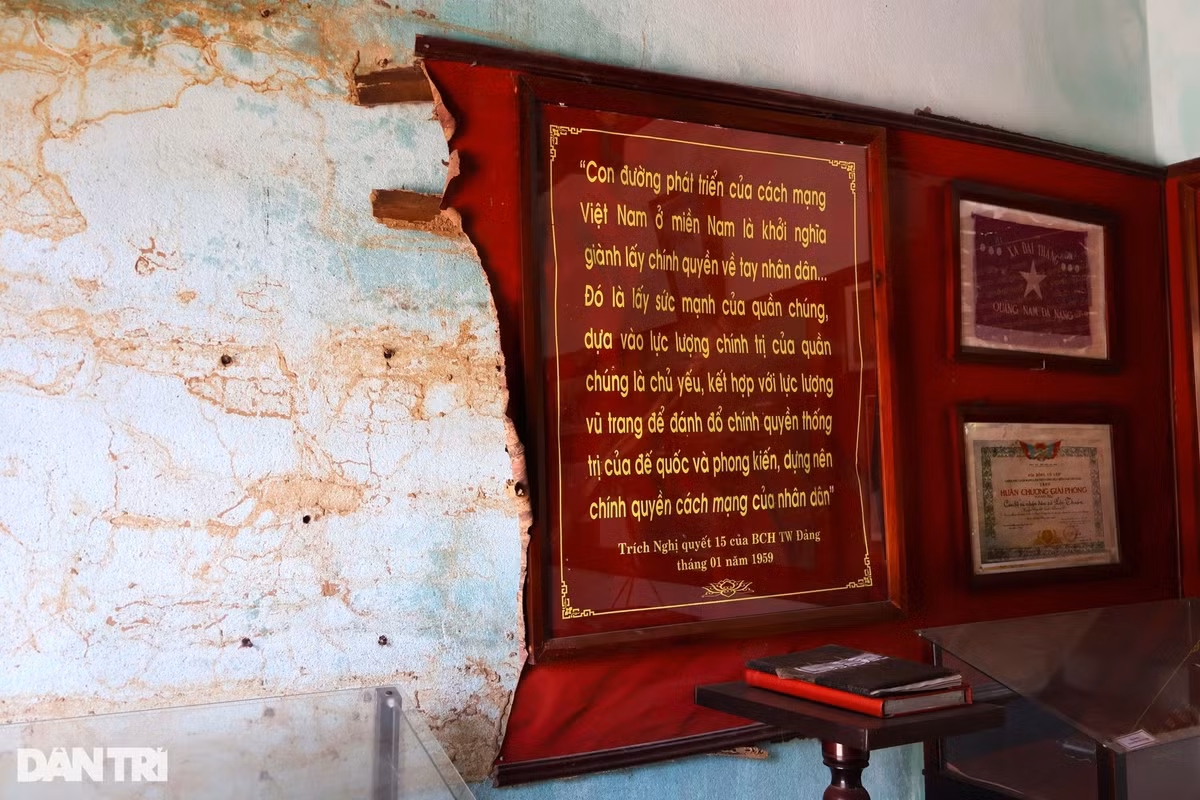 “Con đường phát triển của cách mạng
Việt Nam ở miền Nam là khởi nghĩa
giành lấy chính quyền về tay nhân dân...
Đó là lấy sức mạnh của quần chúng,
dựa vào lực lượng chính trị của quần
chúng là chủ yếu, kết hợp với lực lượng
vũ trang để đánh đổ chính quyền thống
trị của đế quốc và phong kiến, dựng nên
chính quyền cách mạng của nhân dân”
Trích Nghị quyết 15 của BCH TW Đảng
tháng 01 năm 1959
XÃ ĐẠI
QUẢNG NAM ĐÀ NẴNG
HUÂN CHƯƠNG GIẢI PHÓNG
DÂN TRÍ